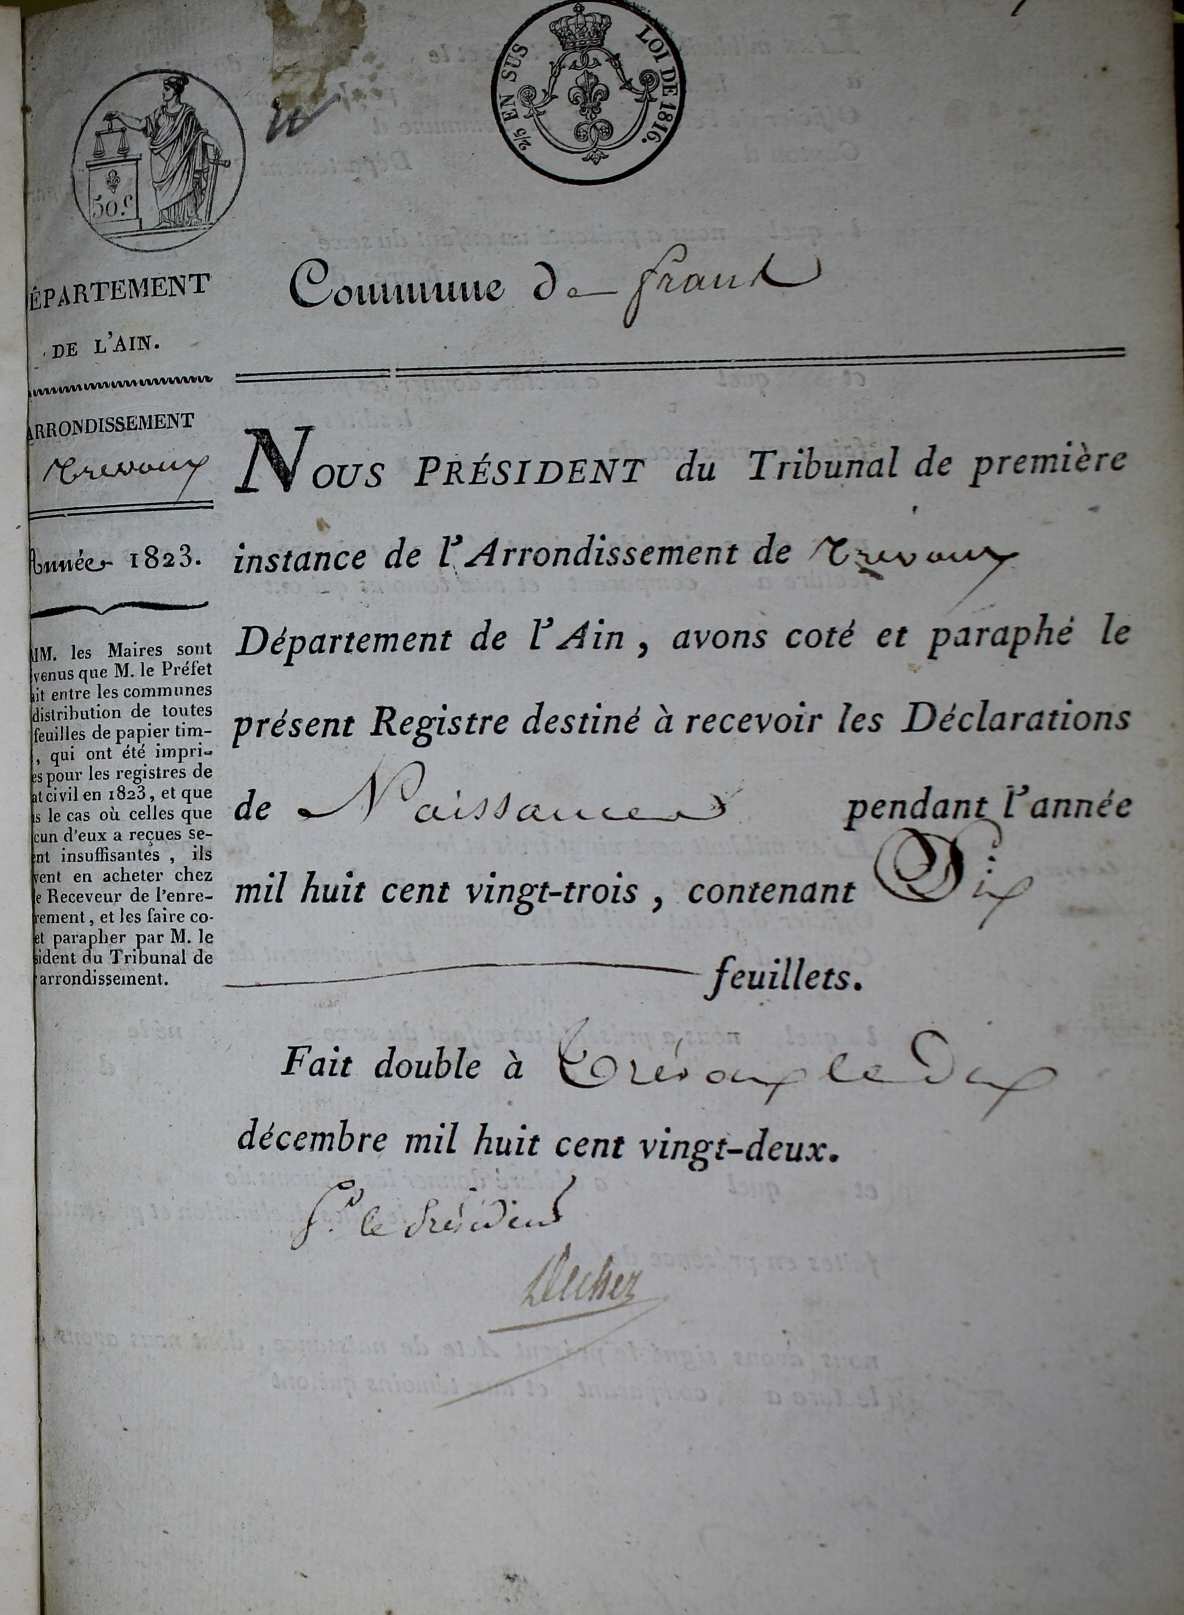 2/5 EN SUS
LOI DE 1816.
50.c
ÉPARTEMENT
DE L'AIN.
ARRONDISSEMENT
Trevoux
Année 1823.
MM. les Maires sont
venus que M. le Préfet
ait entre les communes
distribution de toutes
feuilles de papier tim-
, qui ont été impri-
es pour les registres de
at civil en 1823, et que
s le cas où celles que
cun d'eux a reçues se-
ent insuffisantes, ils
vent en acheter chez
e Receveur de l'enre-
rement, et les faire co-
et parapher par M. le
sident du Tribunal de
arrondissement.
Commune de frans
NOUS PRÉSIDENT du Tribunal de première
instance de l'Arrondissement de Trevoux
Département de l'Ain, avons coté et paraphé le
présent Registre destiné à recevoir les Déclarations
de Naissances pendant l'année
mil huit cent vingt-trois, contenant Dix
feuillets.
Fait double à Trévoux le Dix
décembre mil huit cent vingt-deux.
Pr. le Président